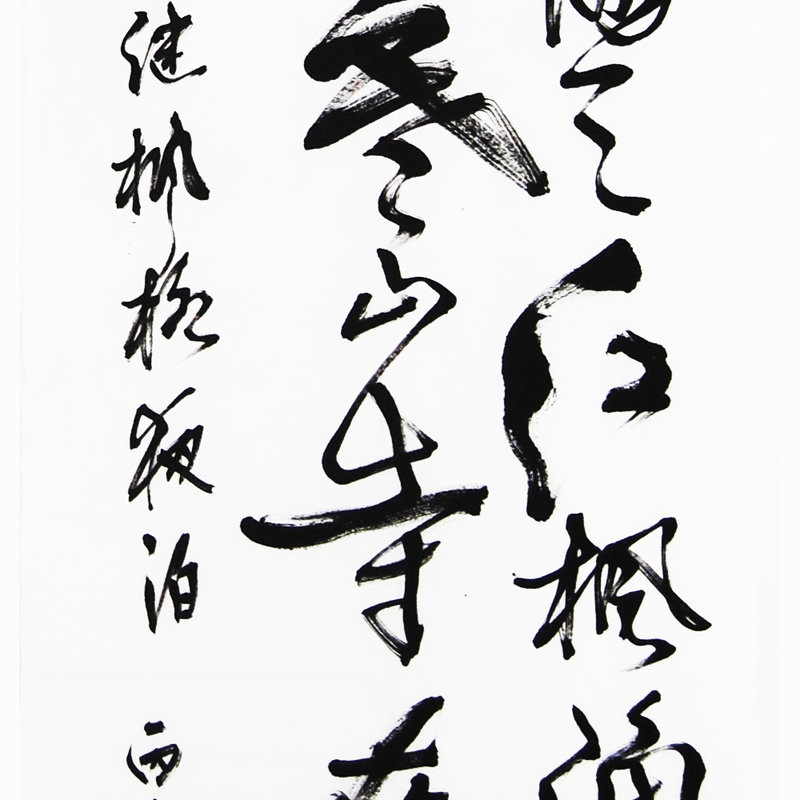 天江枫渔
寒山寺
继枫桥夜泊